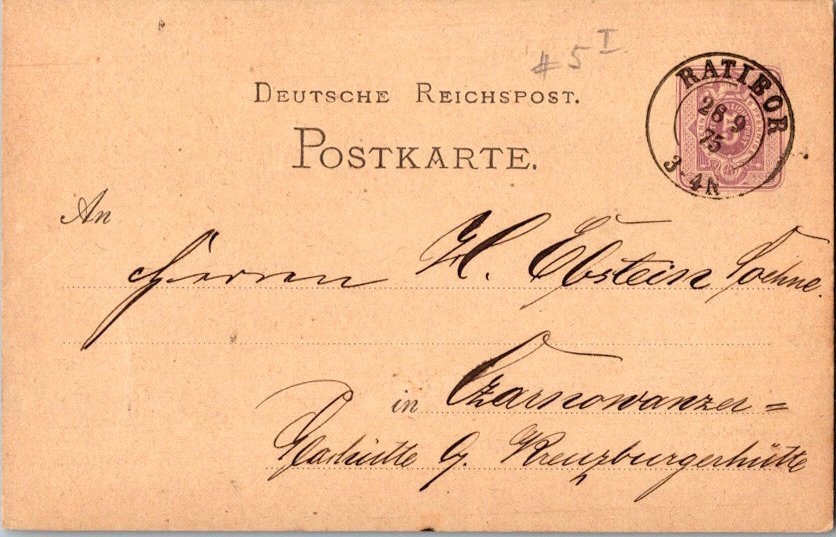 # 5 I
DEUTSCHE REICHSPOST.
POSTKARTE.
RATIBOR
28 9
75
3-4N
An
Herren H. Ebstein Soehne.
in Czarnowanzer=
Glashütte b. Kreuzburgerhütte